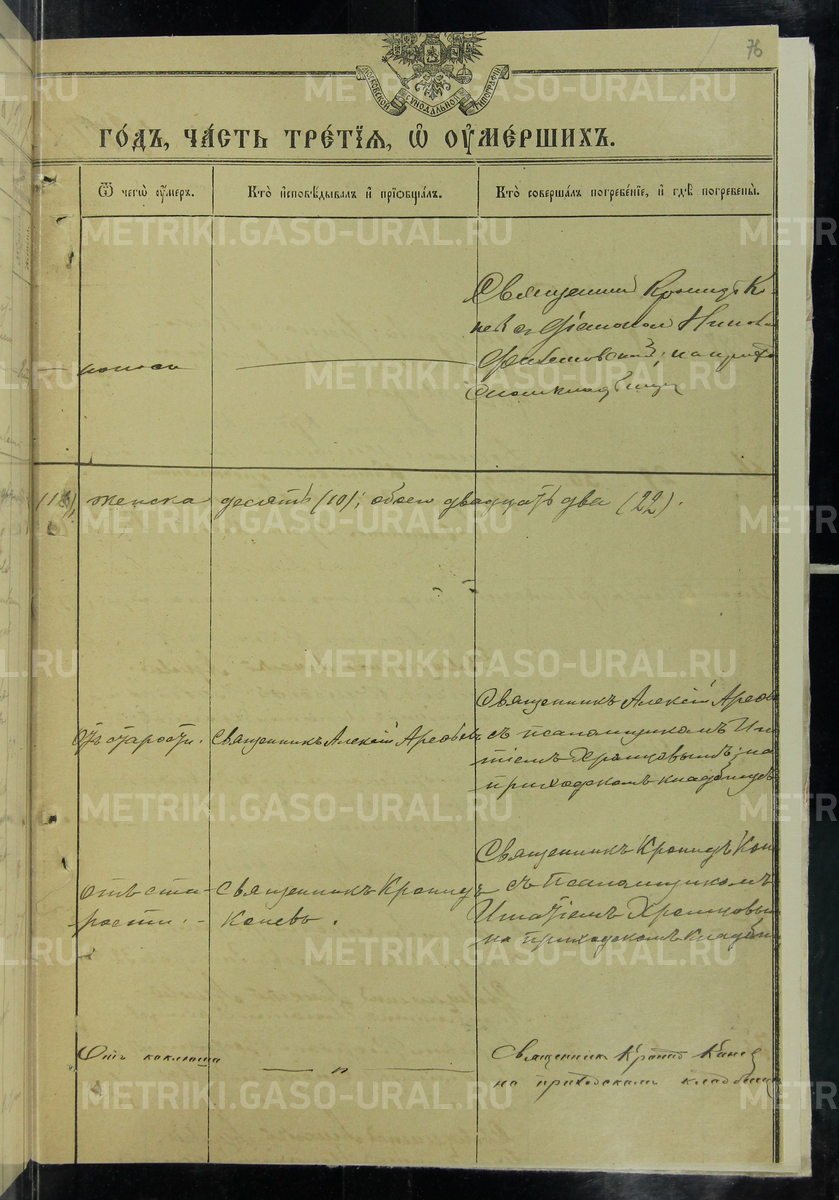 76
МОСКОВСКОЙ СѴНОДАЛЬНОЙ ТИПОГРАФІИ
ГО́ДЪ, ЧА́СТЬ ТРЕ́ТЇѦ, Ѡ҆ ОУ҆МЕ́РШИХЪ.
Ѿ чегѡ̀ ᲂу҆́меръ.
Кто̀ и҆сповѣ́дывалъ и҆ прїѡбща́лъ.
Кто̀ соверша́лъ погребе́нїе, и҆ гдѣ̀ погребены̀.
Священник Кронид Ко-
нев с Діаконом
на приход
ском кладбищѣ
поноса
женска десять (10); обоего двадцать два (22).
Отъ старости.
Священникъ Алексій Арефьевъ
Священникъ Алексій Арефь
съ псаломщикомъ Игна
тіемъ Храмцовымъ; на
приходскомъ кладбищѣ
отъ ста-
рости. -
Священникъ Кронидъ
Коневъ.
Священникъ Кронидъ Кон
съ Псаломщикомъ
Игнатіемъ Храмцовым
на приходскомъ кладбищ
Отъ коклюша
— „ —
Священник Кронид Конев
на приходском кладбище
METRIKI.GASO-URAL.RU